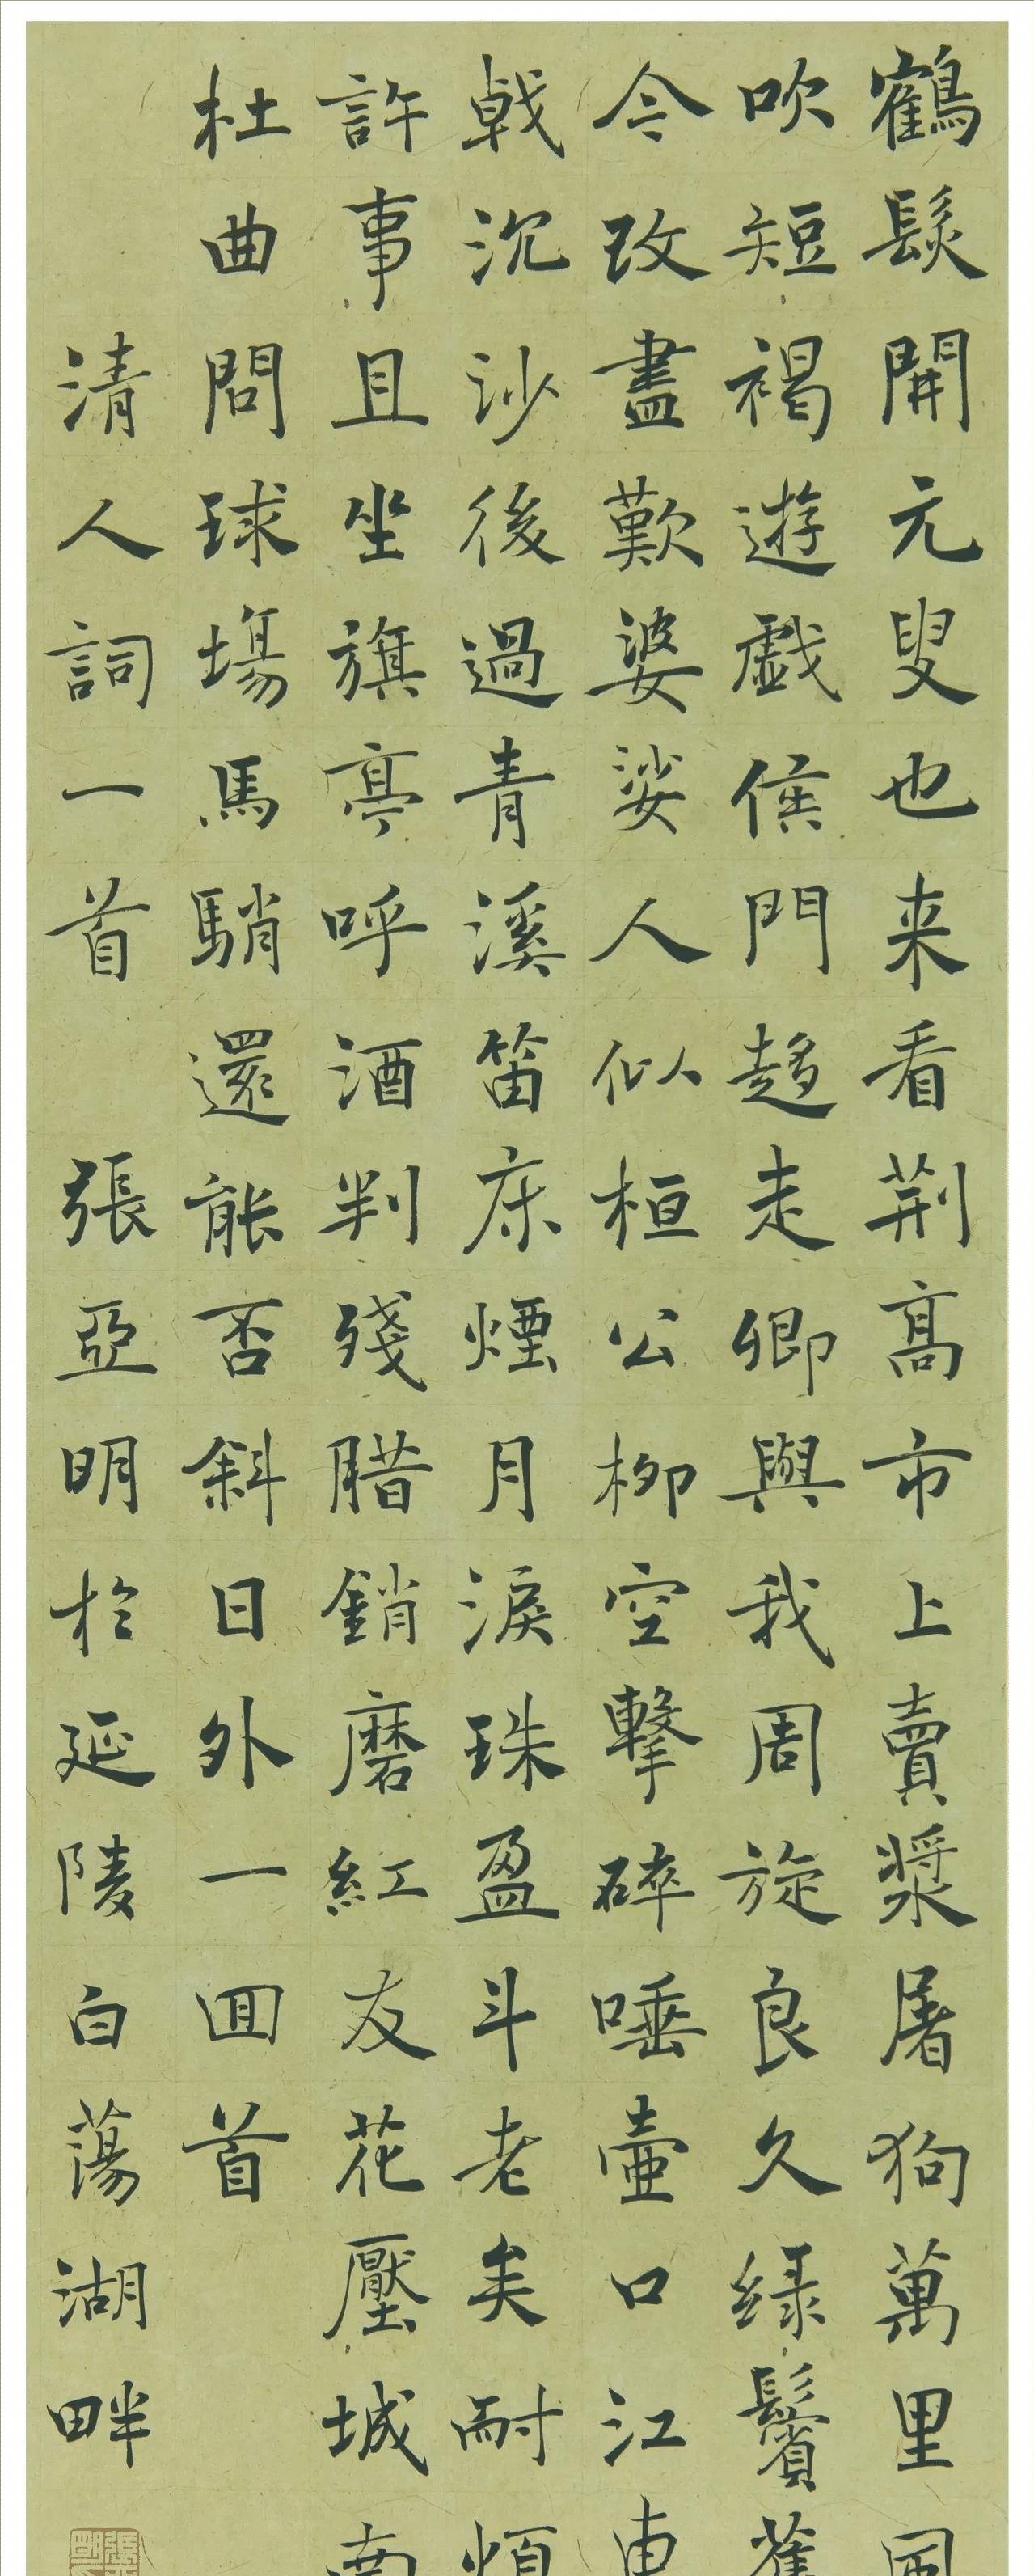 鶴髮開元叟也来看荆髙市上賣漿屠狗萬里風
吹短褐遊戯侯門趍走卿與我周旋良久绿鬢舊
今改盡歎婆娑人似桓公柳空擊碎唾壷口江東
戟沉沙後過青溪笛床煙月淚珠盈斗老矣耐煩
許事且坐旗亭呼酒判殘腊銷磨紅友花壓城南
杜曲問球場馬鞘還能否斜日外一囬首
清人詞一首 張亞明於延陵白蕩湖畔